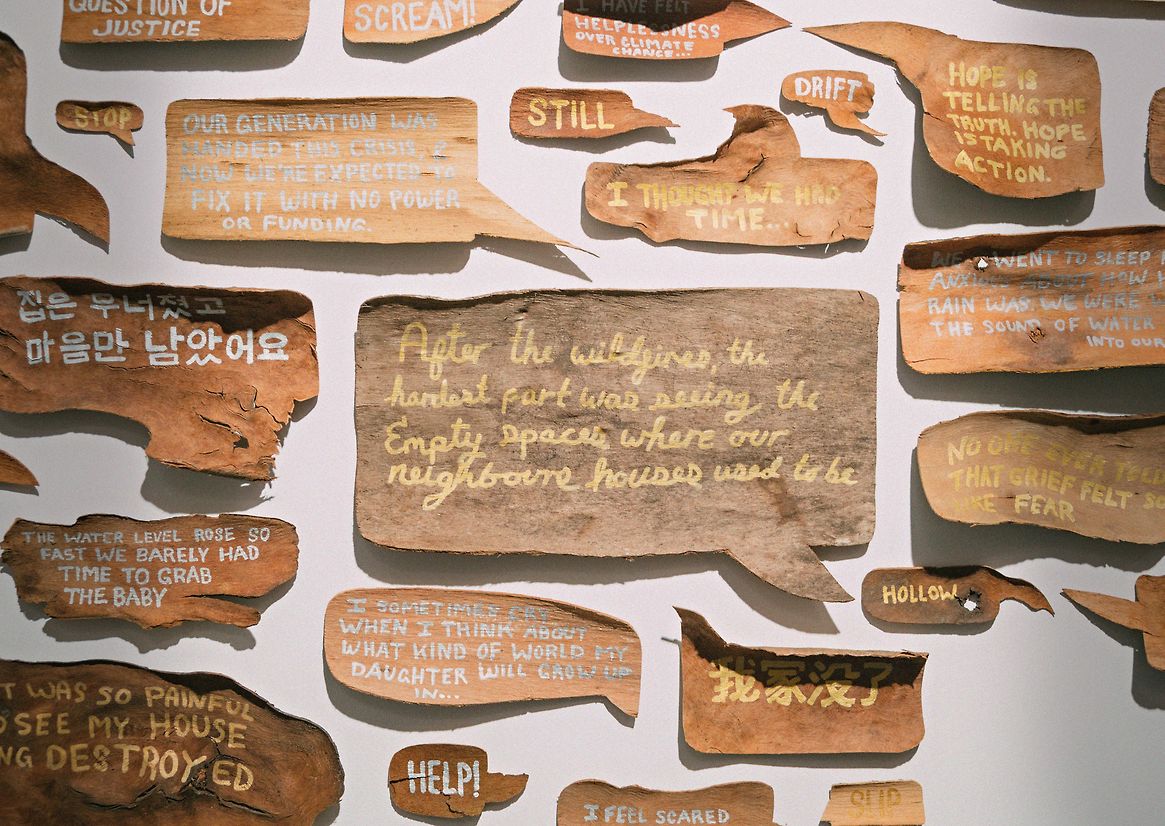 QUESTION OF
JUSTICE
SCREAM!
I HAVE FELT
HELPLESSNESS
OVER CLIMATE
CHANGE...
STOP
OUR GENERATION WAS
HANDED THIS CRISIS, &
NOW WE'RE EXPECTED TO
FIX IT WITH NO POWER
OR FUNDING.
STILL
DRIFT
HOPE IS
TELLING THE
TRUTH. HOPE
IS TAKING
ACTION.
I THOUGHT WE HAD
TIME...
WENT TO SLEEP
ANXIOUS ABOUT HOW
RAIN WAS. WE WERE
THE SOUND OF WATER
INTO OUR
집은 무너졌고
마음만 남았어요
After the wildfires, the
hardest part was seeing the
Empty spaces where our
neighbours houses used to be
NO ONE EVER TOLD
THAT GRIEF FELT SO
LIKE FEAR
THE WATER LEVEL ROSE SO
FAST WE BARELY HAD
TIME TO GRAB
THE BABY
HOLLOW
I SOMETIMES CRY
WHEN I THINK ABOUT
WHAT KIND OF WORLD MY
DAUGHTER WILL GROW UP
IN...
我家没了
IT WAS SO PAINFUL
TO SEE MY HOUSE
DESTROYED
HELP!
I FEEL SCARED
SLIP